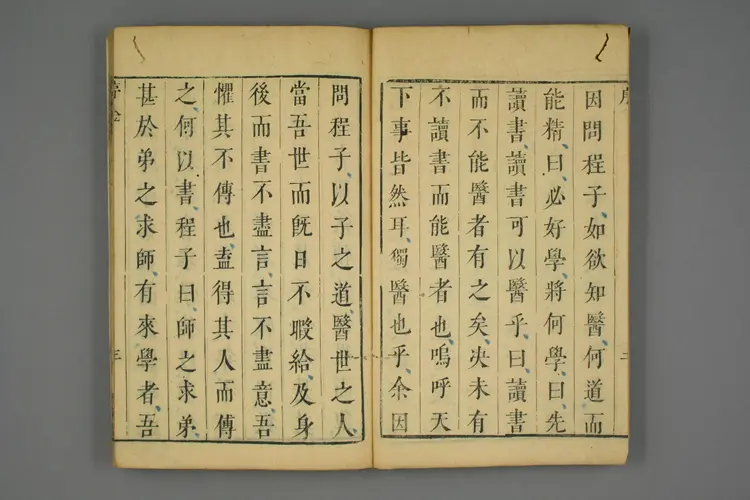 序
二
因問程子、如欲知醫何道而
能精、曰、必好學、將何學、曰、先
讀書、讀書可以醫乎、曰、讀書
而不能醫者有之矣、决未有
不讀書而能醫者也、嗚呼天
下事皆然耳、獨醫也乎、余因
問程子、以子之道、醫世之人、
當吾世而旣日不暇給、及身
後而書不盡言、言不盡意、吾
懼其不傳也、盍得其人而傳
之、何以書、程子曰、師之求弟、
甚於弟之求師、有來學者、吾
序
三